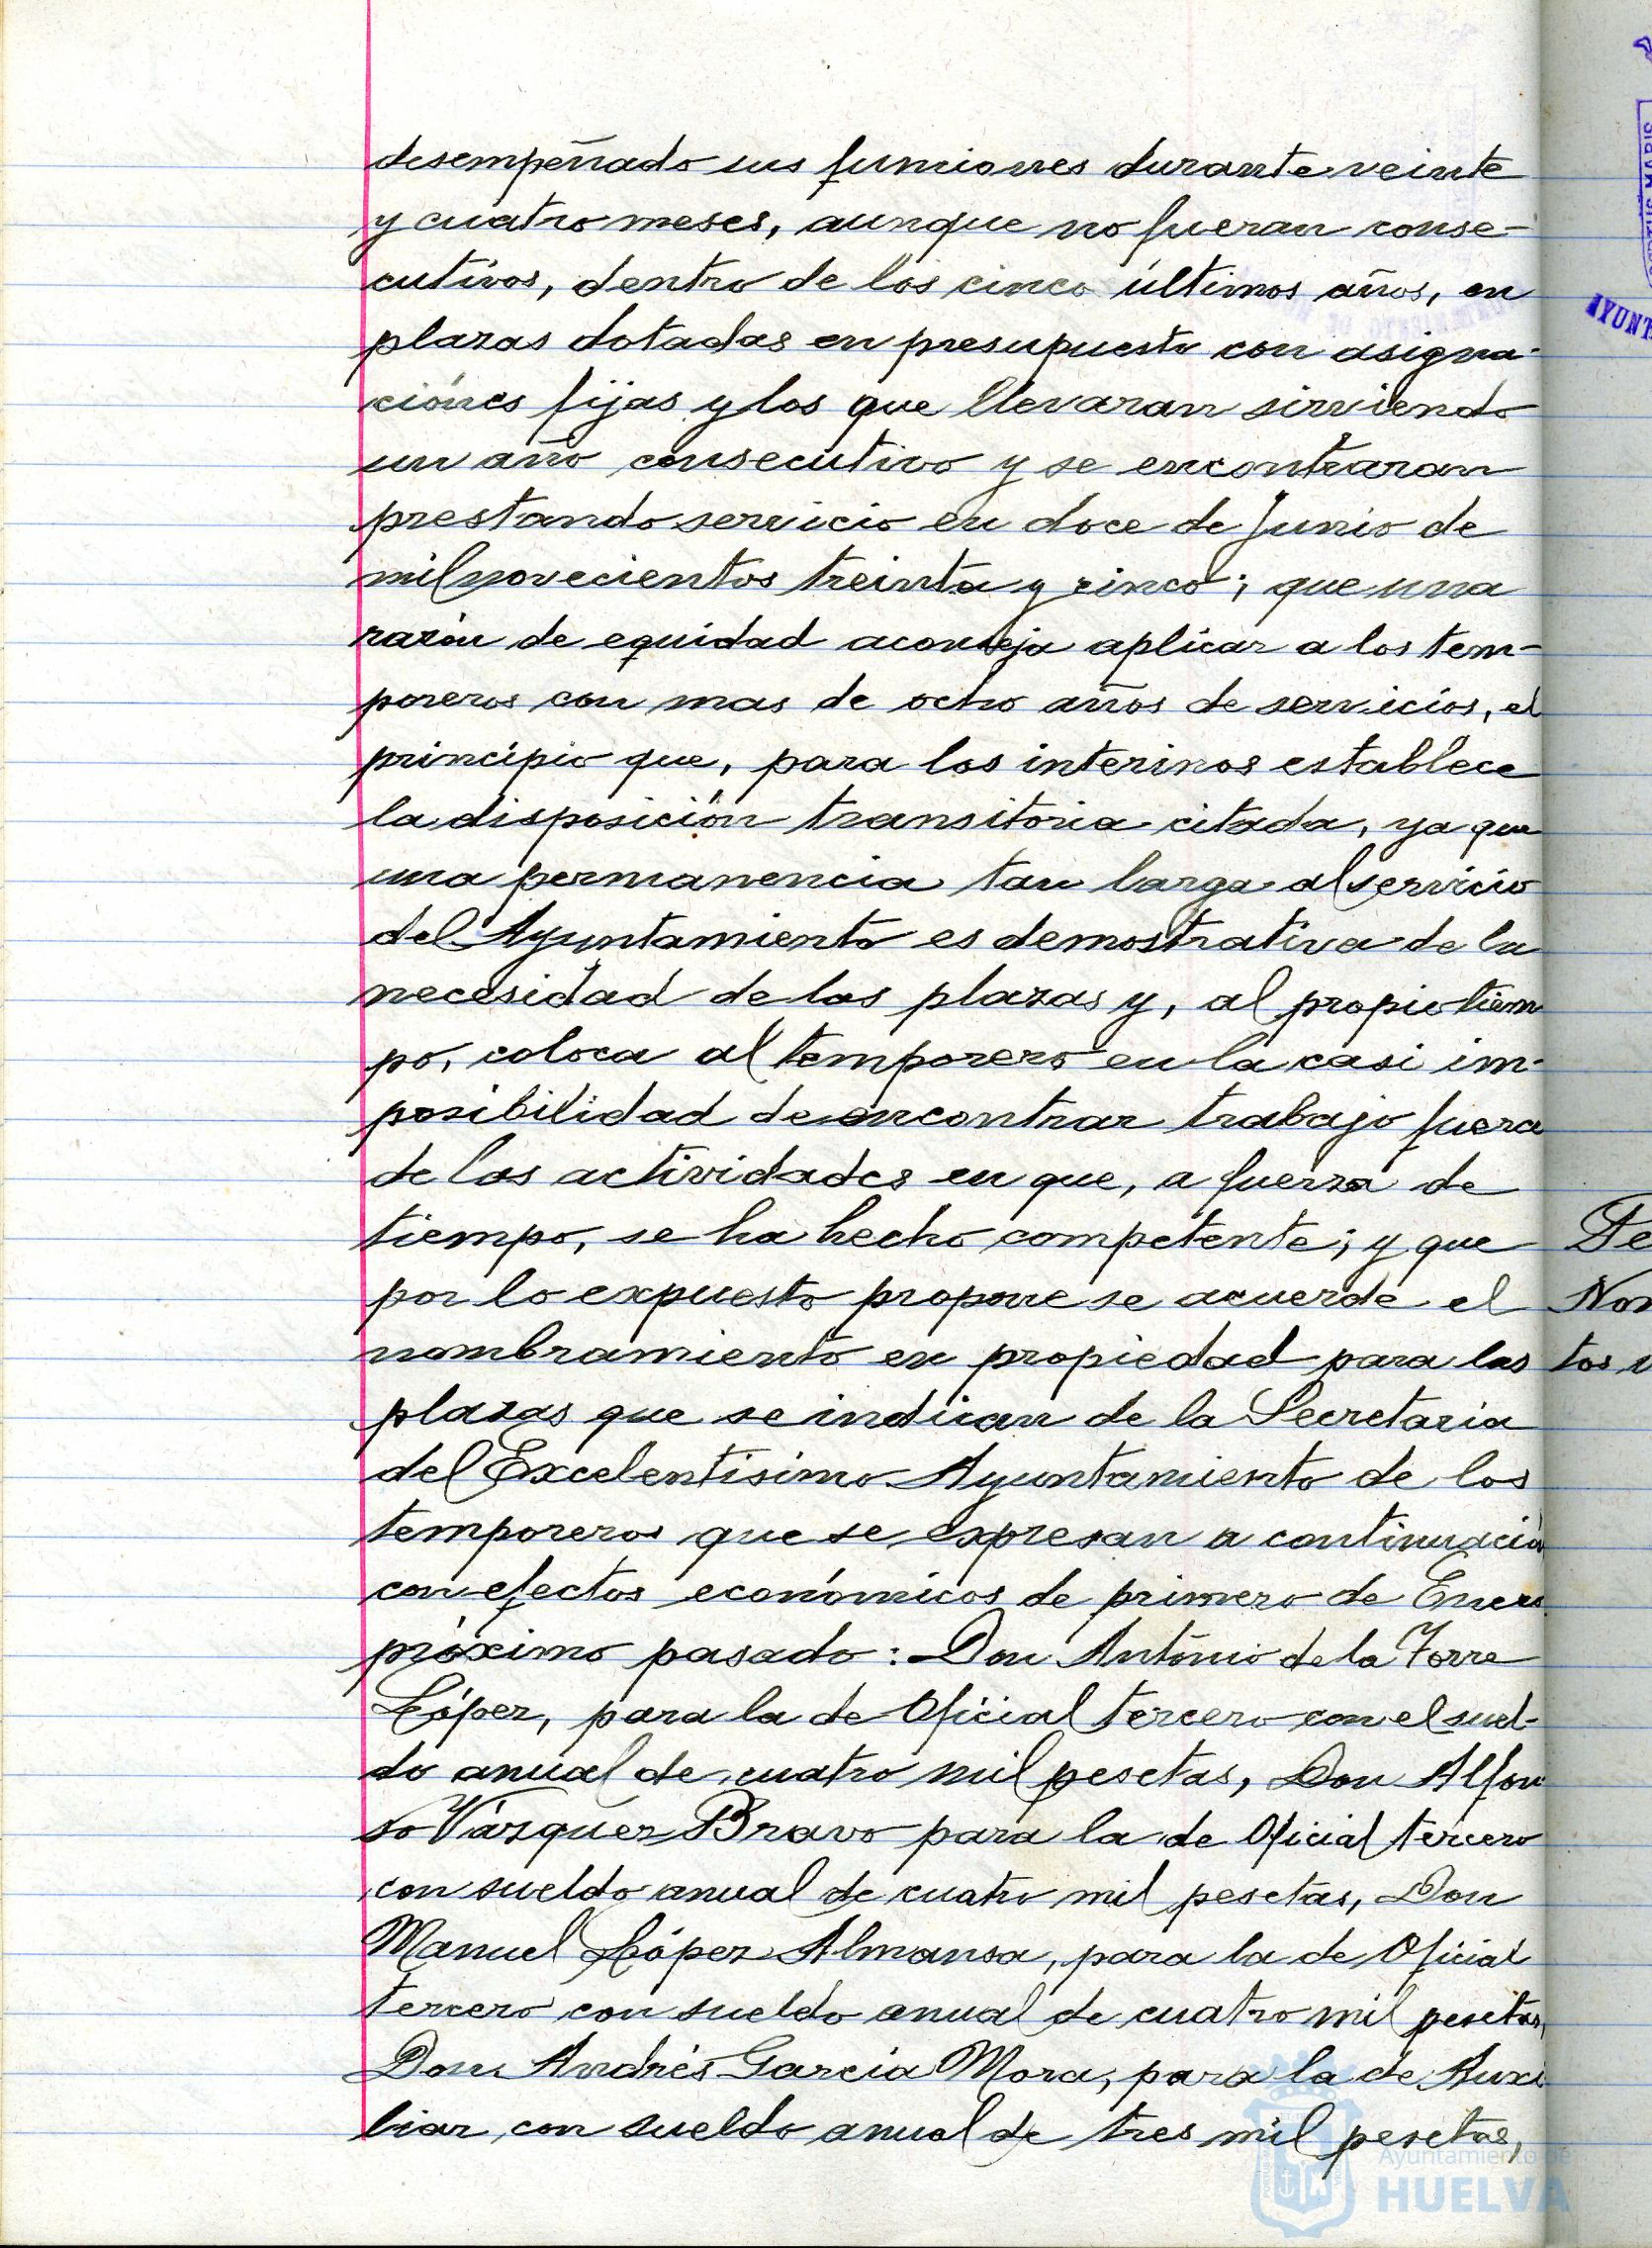 desempeñado sus funciones durante veinte
y cuatro meses, aunque no fueran conse-
cutivos, dentro de los cinco últimos años, en
plazas dotadas en presupuesto con asigna-
ciones fijas y los que llevaran sirviendo
un año consecutivo y se encontraran
prestando servicio en doce de Junio de
mil novecientos treinta y cinco; que una
razón de equidad aconseja aplicar a los tem-
poreros con mas de ocho años de servicios, el
principio que, para los interinos establece
la disposición transitoria citada, ya que
una permanencia tan larga al servicio
del Ayuntamiento es demostrativa de la
necesidad de las plazas y, al propio tiem
po, coloca al temporero en la casi im-
posibilidad de encontrar trabajo fuera
de las actividades en que, a fuerza de
tiempo, se ha hecho competente; y que
por lo expuesto propone se acuerde el
nombramiento en propiedad para las
plazas que se indican de la Secretaria
del Excelentisimo Ayuntamiento de los
temporeros que se expresan a continuació
con efectos económicos de primero de Enero
próximo pasado: Don Antonio de la Torre
López, para la de Oficial tercero con el suel-
do anual de cuatro mil pesetas, Don Alfon
so Vázquez Bravo para la de Oficial tercero
con sueldo anual de cuatro mil pesetas, Don
Manuel López Almansa, para la de Oficial
tercero con sueldo anual de cuatro mil pesetas,
Don Andrés García Mora, para la de Auxi
liar, con sueldo anual de tres mil pesetas,
Ayuntamiento de
HUELVA